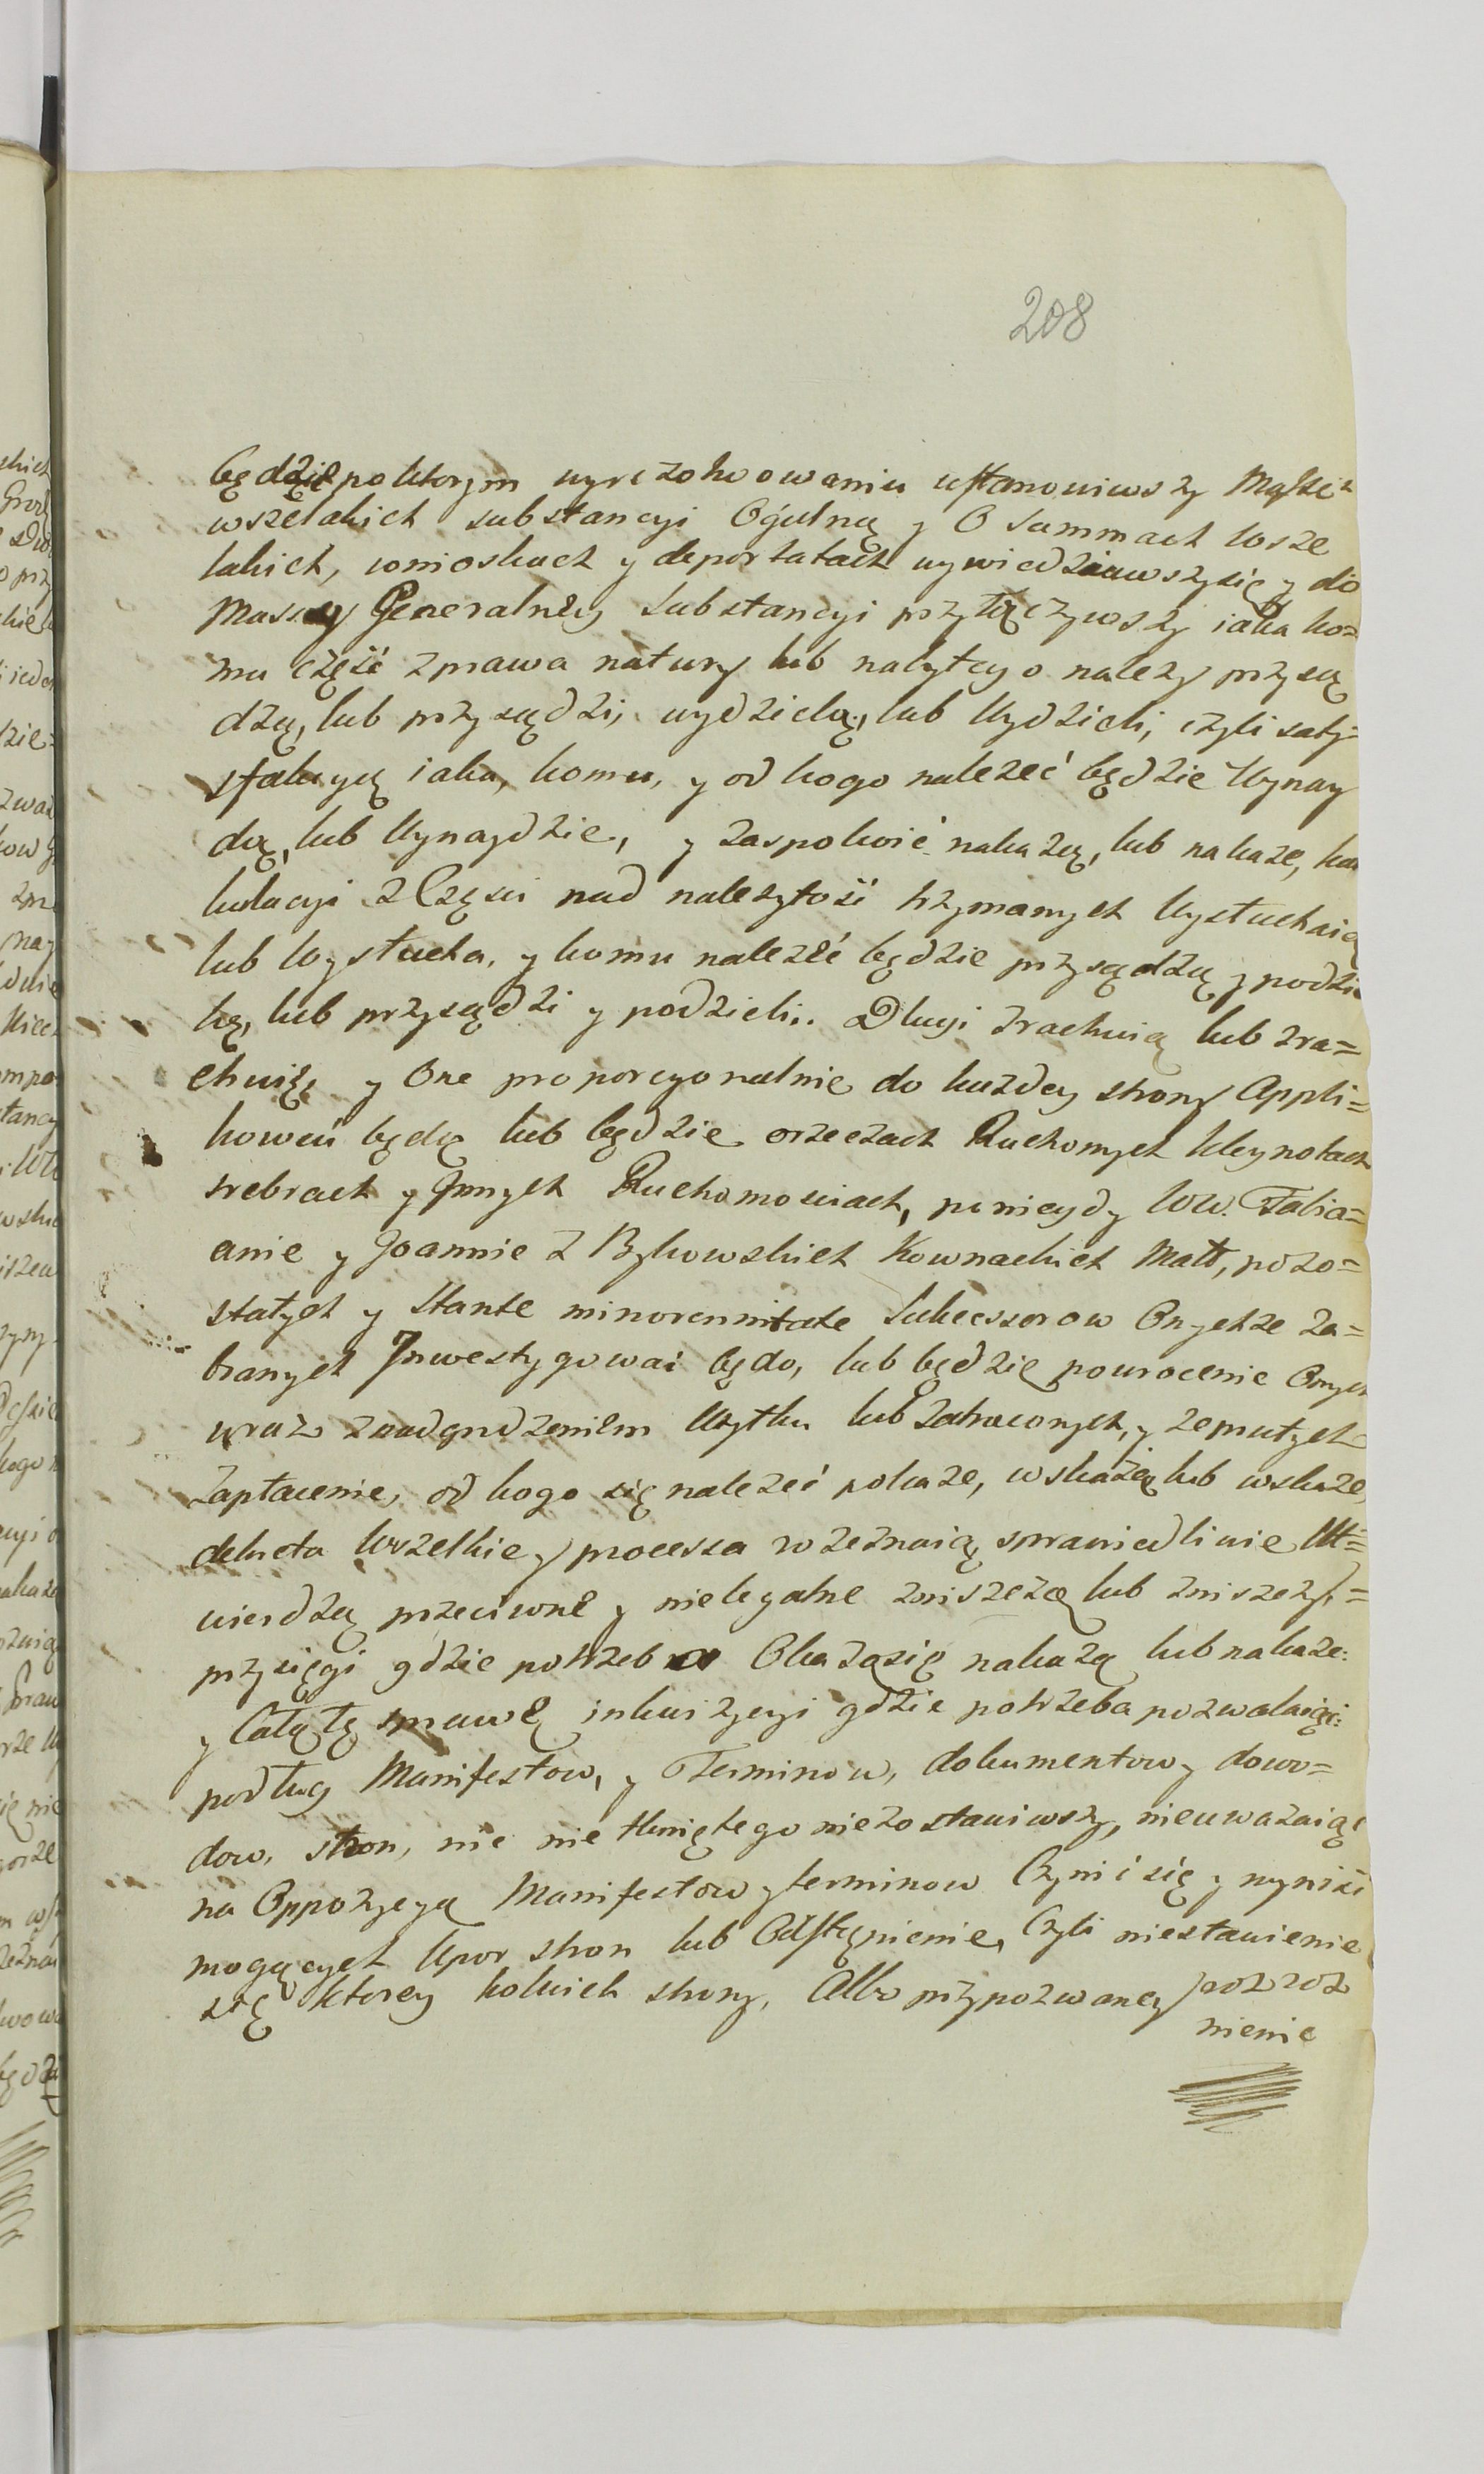 208
będzie po ktorym wyrezolwowaniu ustanowiwszy Massę
wszelakich substancyi Ogulną y O Summach wsze
lakich, wnioskach y deportatach wywiedziawszysię y do
Massy Generalney Substancyi przyłączywszy iaka ko=
mu część z prawa natury lub nabytego należy przysą
dzą, lub przysądzi, wydzielą, lub Wydzieli, czyli saty=
sfakcyą iaka, komu, y od kogo należeć będzie Wynay
dą, lub Wynaydzie, y zaspokoić nakażą, lub nakaże, kal
kulacyi z Częsci nad należytość trzymanych Wysłuchaią
lub Wysłucha, y komu należeć będzie przysądzą y podzie
lą, lub przysądzi y podzieli. Długi zrachuią lub zra=
chuię, y One proporcyonalnie do każdey strony Appli=
kować będą lub będzie o rzeczach Ruchomych kleynotach
srebrach y Jnnych Ruchomosciach, po niegdy WW. Fabia=
anie y Joannie z Bykowskich Kownackich Małż, pozo=
stałych y stante minorennitate Sukcessorow Onychże za=
branych Jnwestygować będo, lub będzie powrocenie Onych
wraz z nadgrodzeniem Użytku lub zatraconych, y zeputych
zapłacenie, od kogo się należeć pokaże, wskażą lub wskaże,
dekreta Wszelkie y processa rozeznaią sprawiedliwie Ut=
wierdzą przeciwne y nielegalne zniszczą lub zniszczy,=
przysięgi gdzie potrzebne Okażąsię nakażą lub nakaże:
y Całą tę sprawę inkwizycyi gdzie potrzeba pozwalaiąc:
podług Manifestow, y Terminow, dokumentow y dowo=
dow, stron, nic nie tkniętego niezostawiwszy, nieuważaiąc
na Oppozycyą Manifestow y terminow Czynić się y wyniść
mogących Upor stron lub Odstąpienie, Czyli niestawienie
się ktorey kolwiek strony, Albo przypozwaney poz roz
nienie